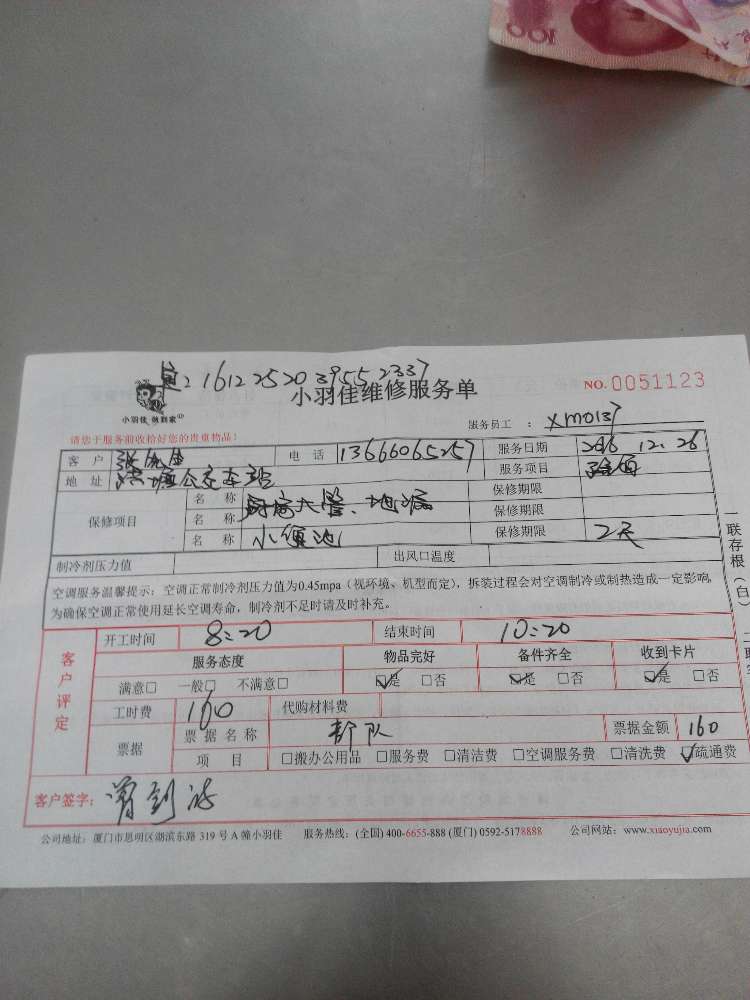 100
1612252039552337
小羽佳 做到家
小羽佳维修服务单
NO. 0051123
请您于服务前收拾好您的贵重物品!
服务员工 : xm0137
客 户 电 话 13666065257 服务日期 2016 12.26
地 址 公交车站 服务项目
保修项目
名 称 保修期限
名 称 厨房大管、地漏 保修期限
名 称 小便池 保修期限 2天
制冷剂压力值 出风口温度
空调服务温馨提示:空调正常制冷剂压力值为0.45mpa(视环境、机型而定),拆装过程会对空调制冷或制热造成一定影响,
为确保空调正常使用延长空调寿命,制冷剂不足时请及时补充。
客户评定
开工时间 8:20 结束时间 10:20
服务态度 物品完好 备件齐全 收到卡片
满意□ 一般□ 不满意□ ☑是 □否 ☑是 □否 ☑是 □否
工时费 160 代购材料费
票据 票据名称 票据金额 160
项 目 □搬办公用品 □服务费 □清洁费 □空调服务费 □清洗费 ☑疏通费
客户签字:
公司地址:厦门市思明区湖滨东路 319 号 A 幢小羽佳 服务热线:(全国) 400-6655-888 (厦门) 0592-5178888 公司网站:www.xiaoyujia.com
一联存根(白)